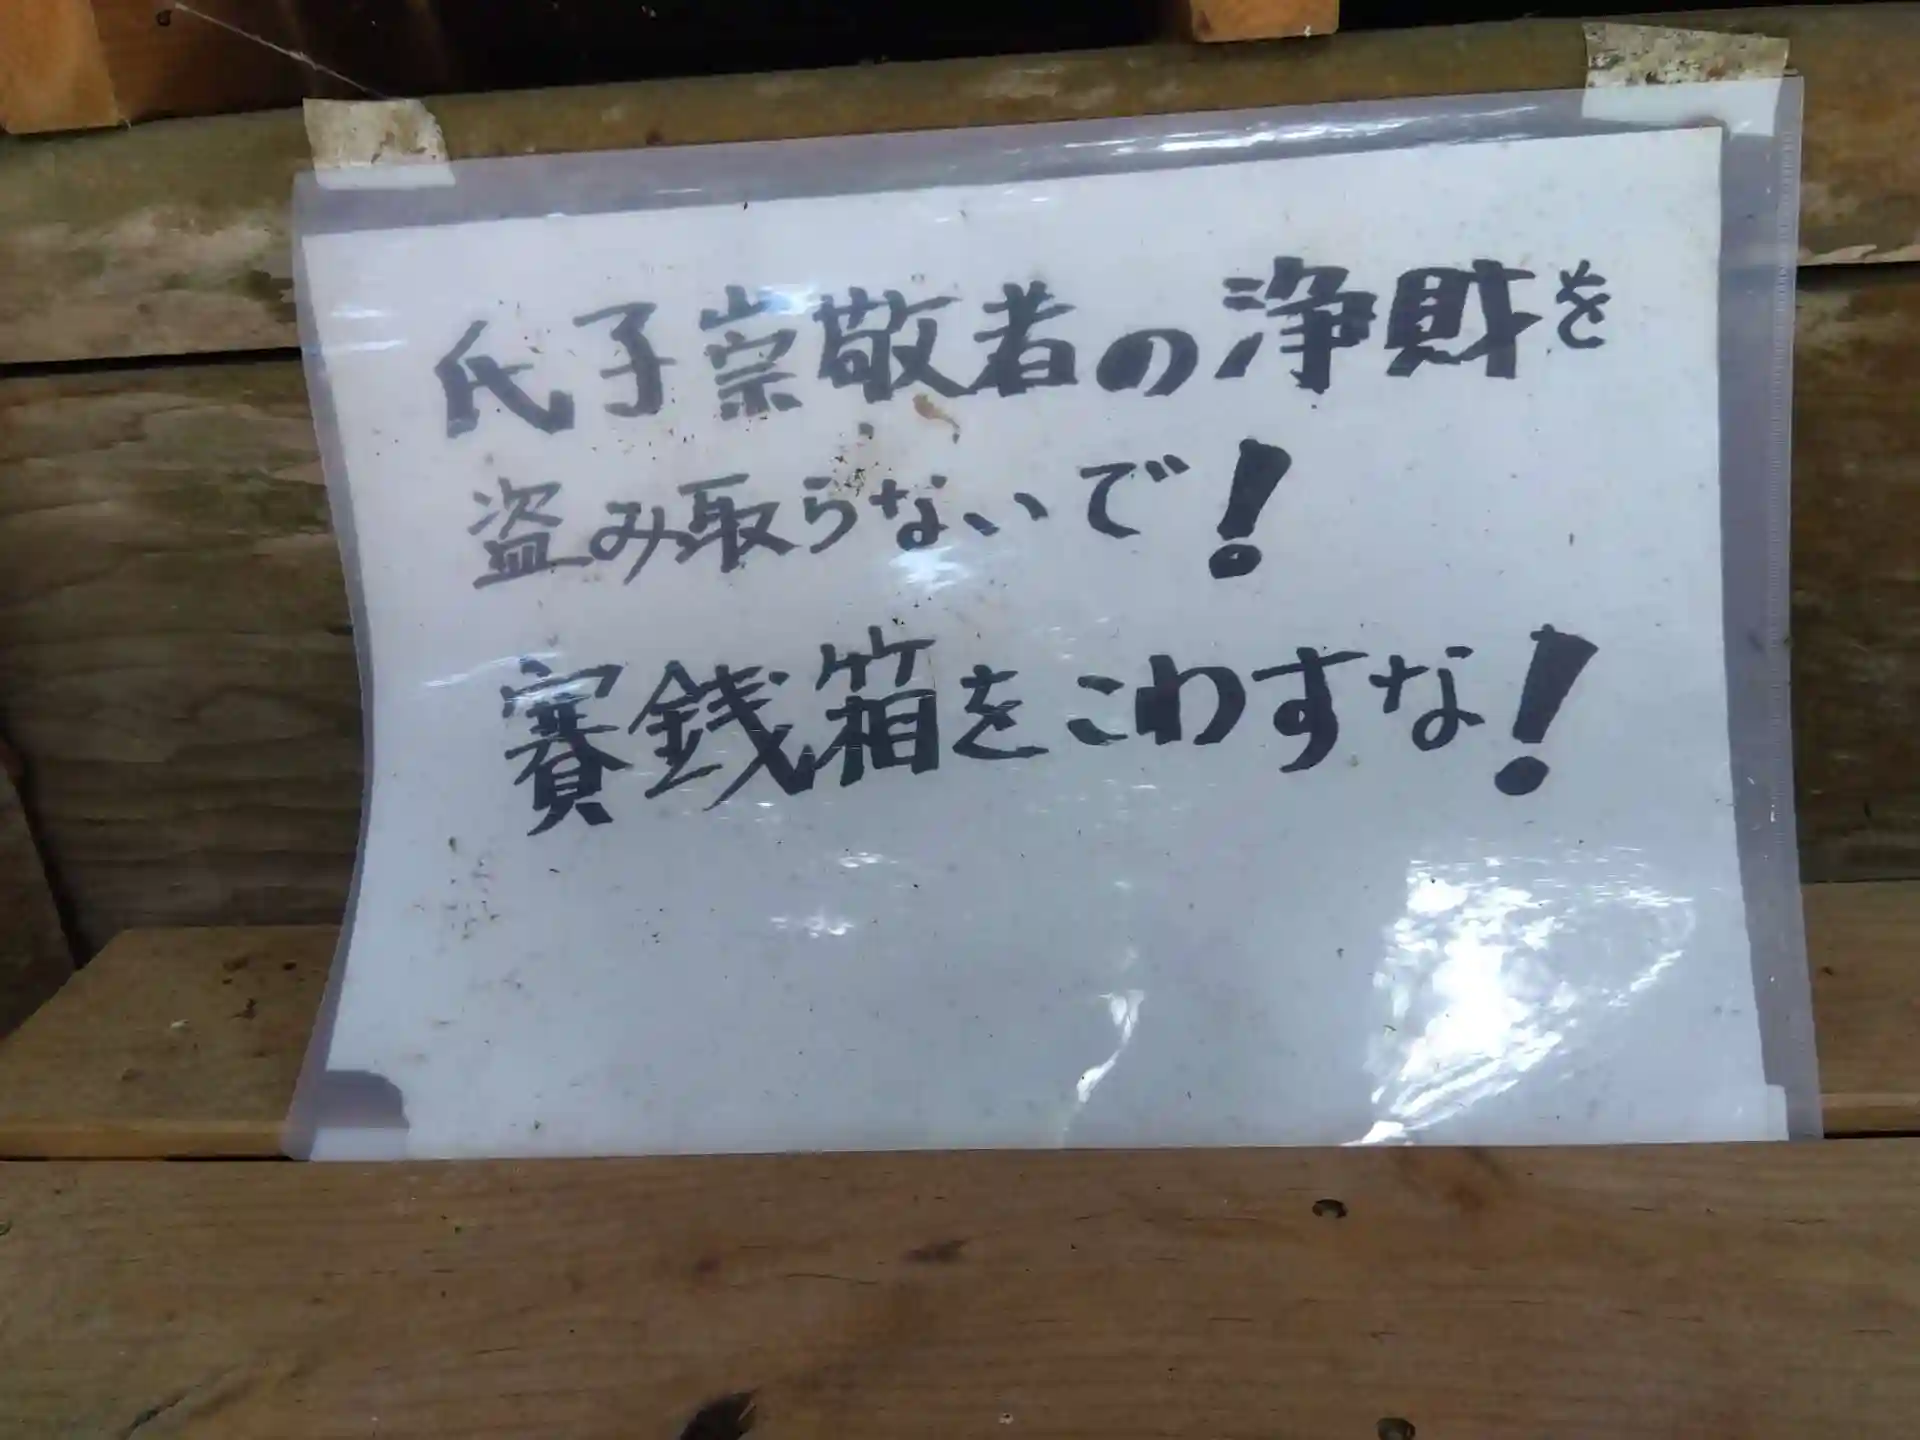 氏子崇敬者の浄財を
盗み取らないで!
賽銭箱をこわすな!